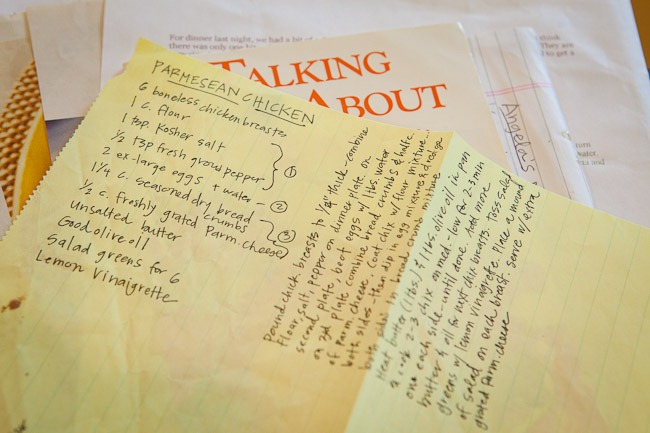 For dinner last night, we had a bit of
there was only one
think
They are
to get a
TALKING
ABOUT
Angela's
turn
water.
PARMESEAN CHICKEN
6 boneless chicken breasts
1 c. flour
1 tsp. kosher salt
1/2 tsp fresh ground pepper
1
2 ex-large eggs + water - 2
1 1/4 c. seasoned dry bread
crumbs
1/2 c. freshly grated Parm. cheese
3
unsalted butter
Good olive oil
Salad greens for 6
Lemon Vinaigrette
Pound chick. breasts to 1/4" thick - combine
flour, salt, pepper on dinner plate, on
second plate, beat eggs w/ 1 tbs. water
on 3rd plate combine bread crumbs & half c.
of parm. cheese. Coat chix w/ flour mixture...
both sides - then dip in egg mixture & dredge
both sides in bread crumb mixture
Heat butter (1 tbs.) & 1 tbs. olive oil in pan
& cook 2-3 chix on med.-low for 2-3 min
one each side until done. Add more
butter & oil for next chix breasts. Toss salad
greens w/ lemon vinagrette. Place a mound
of salad on each breast. Serve w/ extra
grated Parm. cheese